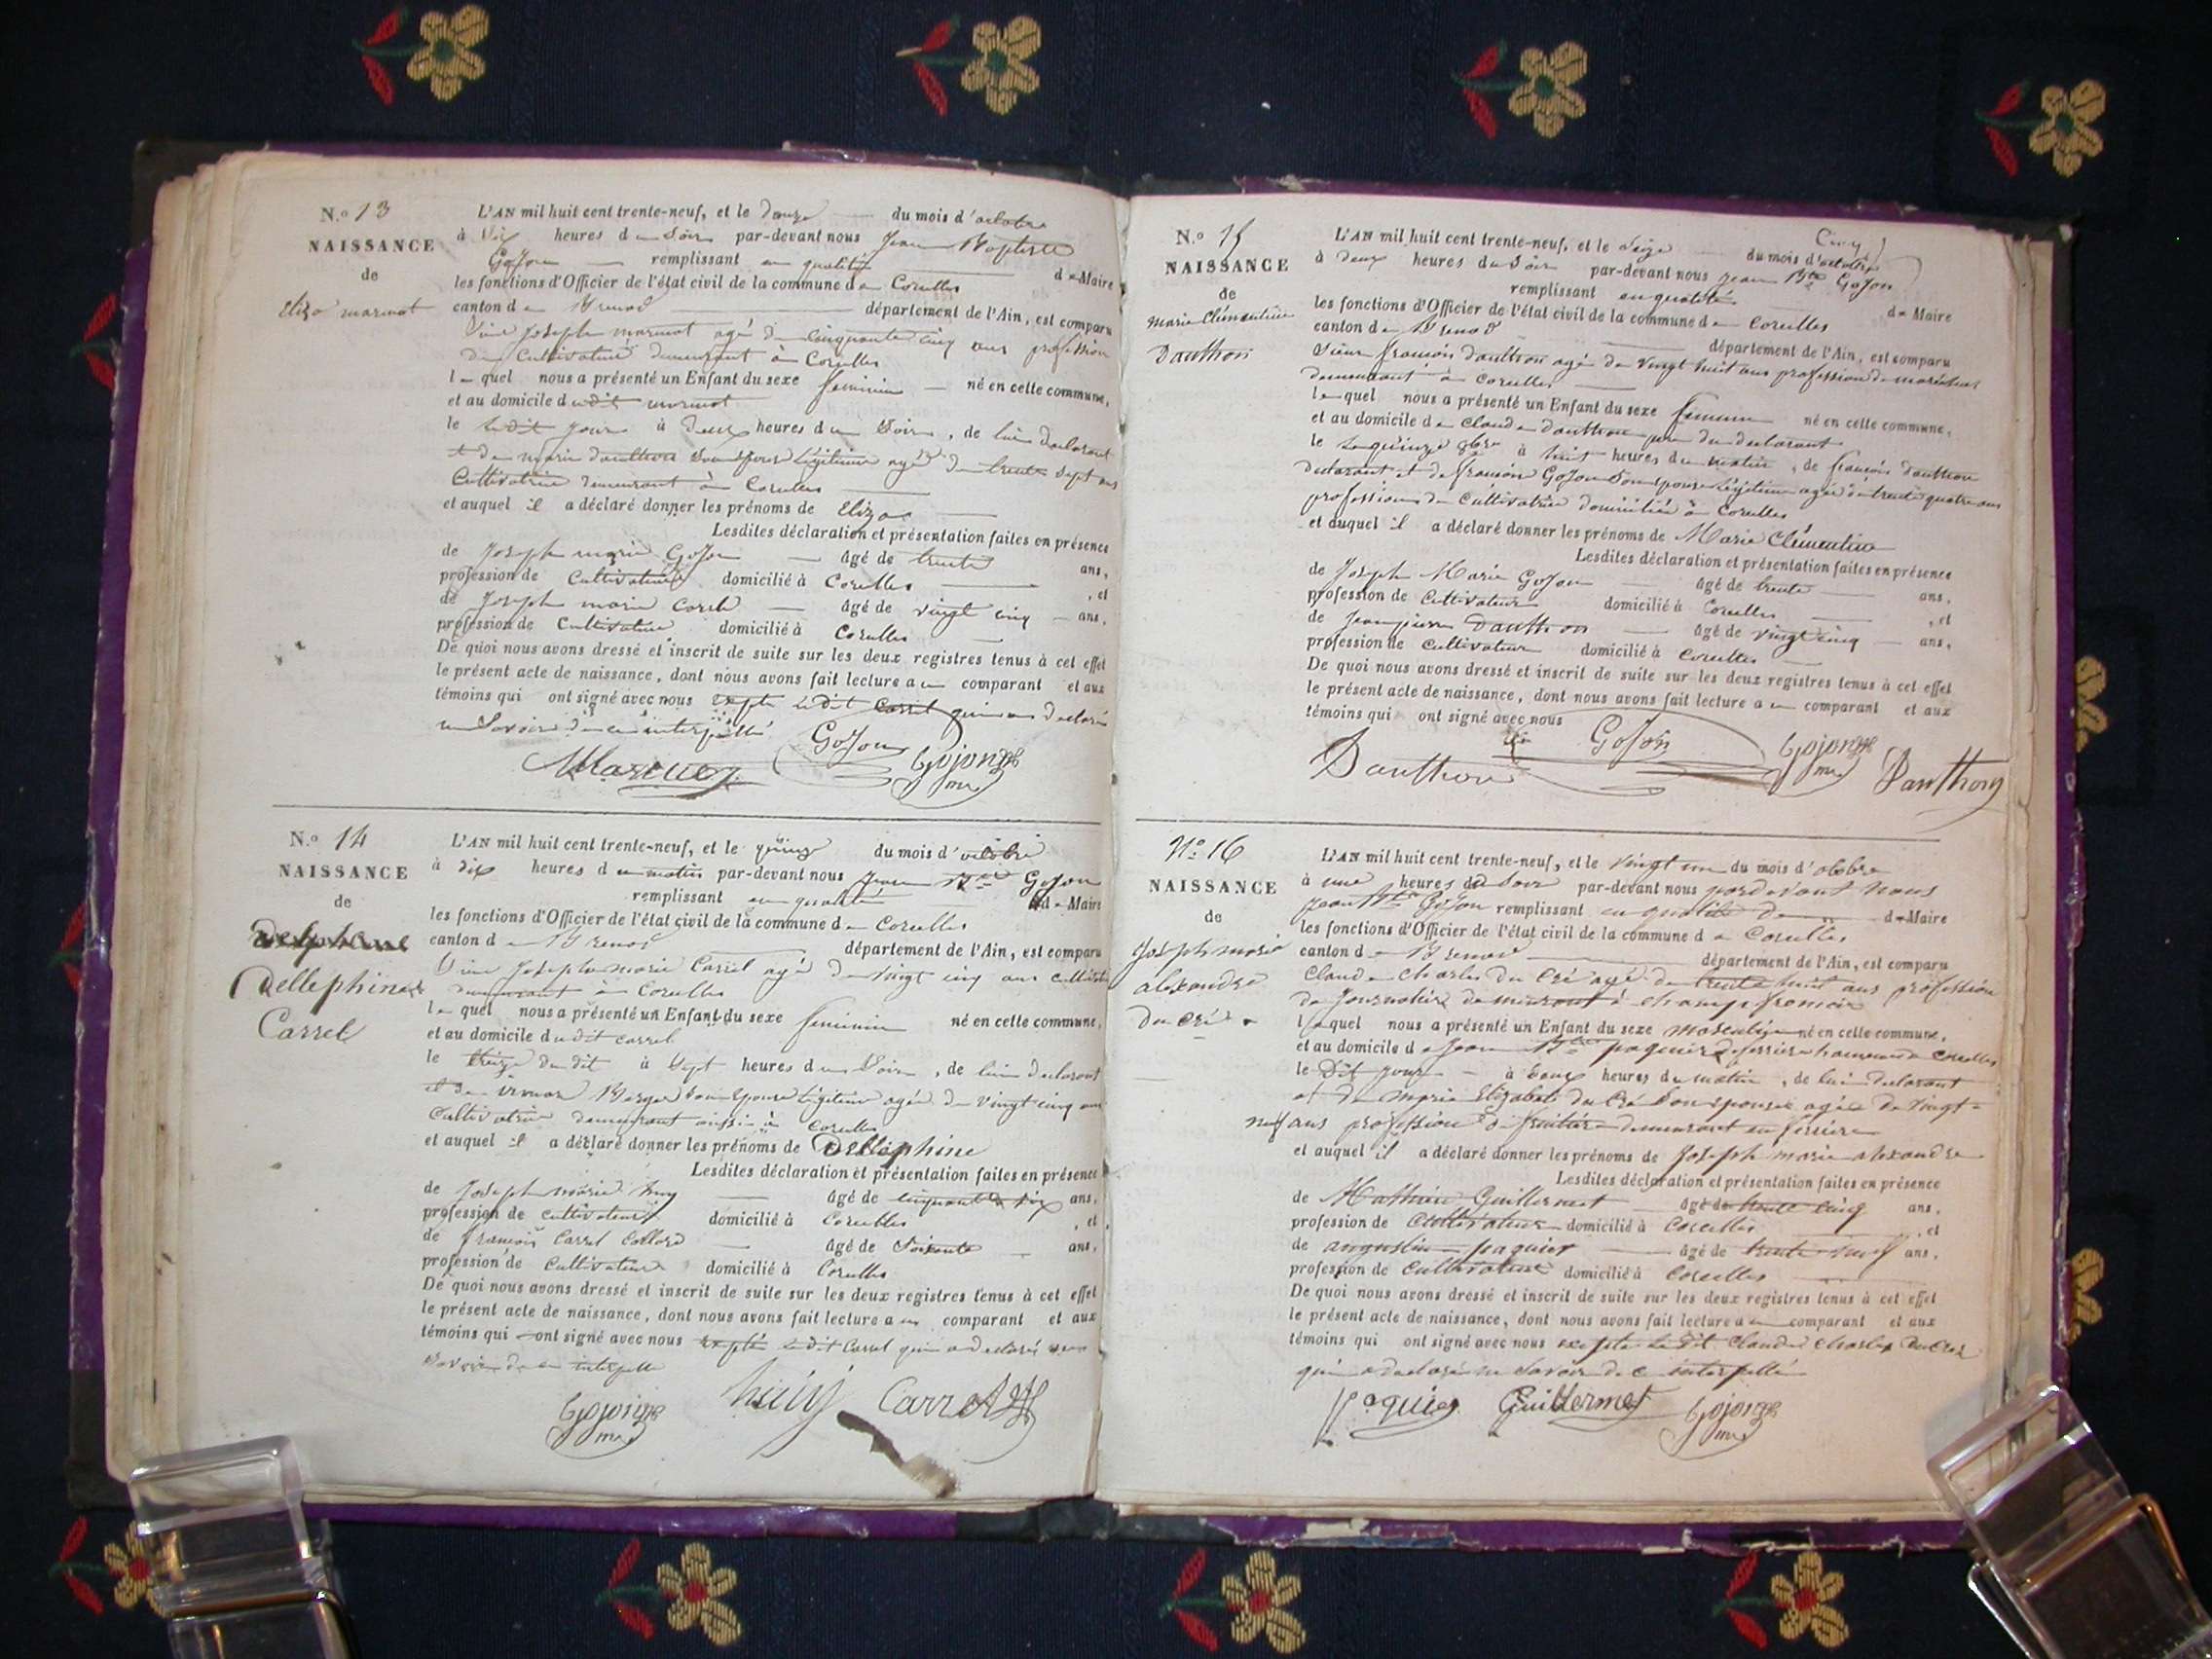 N.o 13
NAISSANCE
de
Eliza marmot
L'AN mil huit cent trente-neuf, et le douze du mois d'octobre
à six heures du Soir par-devant nous Jean Baptiste
Gojon remplissant en qualité de Maire
les fonctions d'Officier de l'état civil de la commune de Corcelles
canton de Brenod département de l'Ain, est comparu
Joseph marmot agé de cinquante cinq ans profession
de Cultivateur demeurant à Corcelles
lequel nous a présenté un Enfant du sexe feminin né en cette commune,
et au domicile du dit marmot
le dit jour à deux heures du Soir, de lui declarant
et de marie dauthon Son épouse légitime agée de trente sept ans
Cultivatrice demeurant à Corcelles
et auquel il a déclaré donner les prénoms de Eliza
Lesdites déclaration et présentation faites en présence
de Joseph marie Gojon âgé de trente ans,
profession de Cultivateur domicilié à Corcelles , et
de Joseph marie Carrel âgé de vingt cinq ans,
profession de Cultivateur domicilié à Corcelles
De quoi nous avons dressé et inscrit de suite sur les deux registres tenus à cet effet
le présent acte de naissance, dont nous avons fait lecture au comparant et aux
témoins qui ont signé avec nous excepté le dit Carrel qui a declaré
ne Savoir de ce interpellé
Gojon Gojon
N.o 14
NAISSANCE
de
Dellephine
Carrel
L'AN mil huit cent trente-neuf, et le quinze du mois d'octobre
à dix heures du matin par-devant nous Jean Bte Gojon
remplissant en qualité de Maire
les fonctions d'Officier de l'état civil de la commune de Corcelles
canton de Brenod département de l'Ain, est comparu
Joseph marie Carrel agé de vingt cinq ans
demeurant à Corcelles
lequel nous a présenté un Enfant du sexe feminin né en cette commune,
et au domicile du dit carrel
le treize du dit à Sept heures du Soir, de lui declarant
et de Berger Son épouse légitime agée de vingt cinq ans
Cultivatrice demeurant aussi à Corcelles
et auquel il a déclaré donner les prénoms de Dellephine
Lesdites déclaration et présentation faites en présence
de Joseph marie huy âgé de cinquante six ans,
profession de cultivateur domicilié à Corcelles , et
de francois Carrel Collard âgé de Soixante ans,
profession de Cultivateur domicilié à Corcelles
De quoi nous avons dressé et inscrit de suite sur les deux registres tenus à cet effet
le présent acte de naissance, dont nous avons fait lecture au comparant et aux
témoins qui ont signé avec nous excepté le dit Carrel qui a declaré ne
Savoir de ce interpellé
Gojon huy Carrel
N.o 15
NAISSANCE
de
marie Clémentine
Dauthon
Cinq
L'AN mil huit cent trente-neuf, et le Seize du mois d'octobre
à deux heures du Soir par-devant nous Jean Bte Gojon
remplissant en qualité de Maire
les fonctions d'Officier de l'état civil de la commune de Corcelles
canton de Brenod département de l'Ain, est comparu
Sieur françois dauthon agé de vingt huit ans profession de maréchal
demeurant à corcelles
lequel nous a présenté un Enfant du sexe feminin né en cette commune,
et au domicile de Claude Dauthon père du declarant
le quinze 8bre à huit heures du matin, de françois dauthon
declarant et de françoise Gojon Son épouse légitime agée de trente quatre ans
profession de Cultivatrice domiciliée à Corcelles
et auquel il a déclaré donner les prénoms de Marie Clémentine
Lesdites déclaration et présentation faites en présence
de Joseph Marie Gojon âgé de trente ans,
profession de Cultivateur domicilié à Corcelles , et
de Jean pierre Dauthon âgé de vingt cinq ans,
profession de Cultivateur domicilié à Corcelles
De quoi nous avons dressé et inscrit de suite sur les deux registres tenus à cet effet
le présent acte de naissance, dont nous avons fait lecture au comparant et aux
témoins qui ont signé avec nous
Dauthon Gojon Gojon Dauthon
N.o 16
NAISSANCE
de
Joseph marie
alexandre
du Cré
L'AN mil huit cent trente-neuf, et le vingt un du mois d'otobre
à une heures du Soir par-devant nous pardevant nous
Jean Bte Gojon remplissant en qualité de de Maire
les fonctions d'Officier de l'état civil de la commune de Corcelles
canton de Brenod département de l'Ain, est comparu
Claude Charles du Cré agé de trente huit ans profession
de Journalier demeurant à champfromier
lequel nous a présenté un Enfant du sexe masculin né en cette commune,
et au domicile de Jean Bte paquier ferrière hameau de Corcelles
le Dit jour à Deux heures du matin, de lui declarant
et de marie Elizabeth du Cré Son épouse agée de vingt-
neuf ans profession de fruitière demeurant en ferrière
et auquel il a déclaré donner les prénoms de Joseph marie alexandre
Lesdites déclaration et présentation faites en présence
de Mathieu Guillermet âgé de trente cinq ans,
profession de Cultivateur domicilié à Corcelles , et
de augustin paquier âgé de trente neuf ans,
profession de Cultivateur domicilié à Corcelles
De quoi nous avons dressé et inscrit de suite sur les deux registres tenus à cet effet
le présent acte de naissance, dont nous avons fait lecture au comparant et aux
témoins qui ont signé avec nous excepte le dit Claude Charles Du Cré
qui a declaré ne Savoir de ce interpellé
paquier Guillermet Gojon